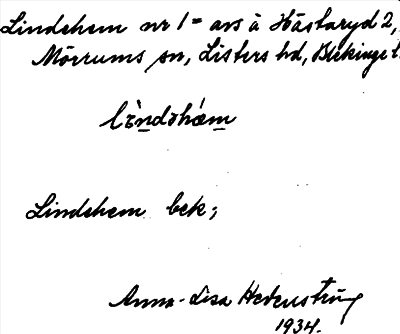 Lindehem nr 1 = avs å Hästaryd 2,
Mörrums sn, Listers hd, Blekinge l.
lìndəhǽm
Lindehem bek;
Anna-Lisa Hedenström
1934.